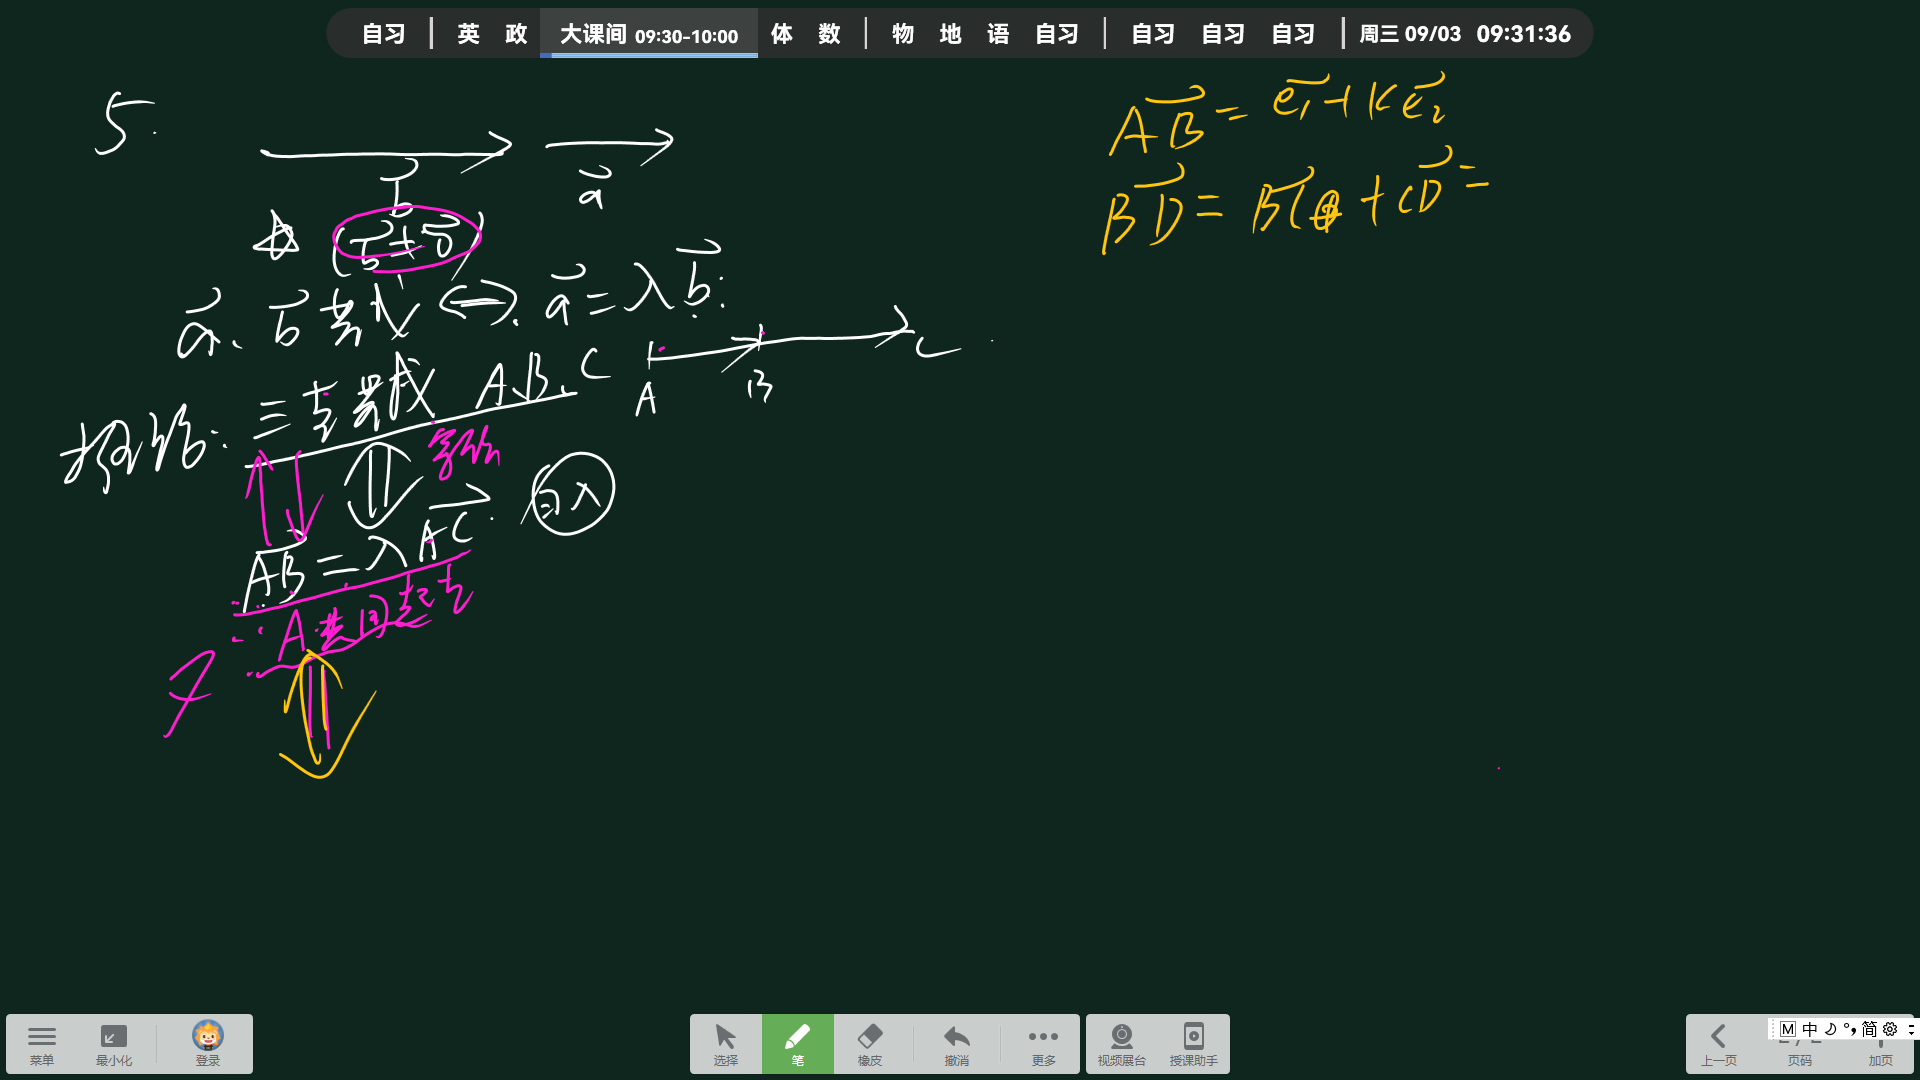 自习 | 英 政 大课间 09:30-10:00 体 数 | 物 地 语 自习 | 自习 自习 自习 | 周三 09/03 09:31:36
5.
b a
(b≠0)
a、b共线 ⇔ a=λb
A B C
推论: 三点共线 A、B、C
字母
AB=λAC
∃λ
A共同起点
AB = e₁+Ke₂
BD = BC + CD =
菜单 最小化 登录 选择 笔 橡皮 撤消 更多 视频展台 授课助手 上一页 页码 加页
M 中 简